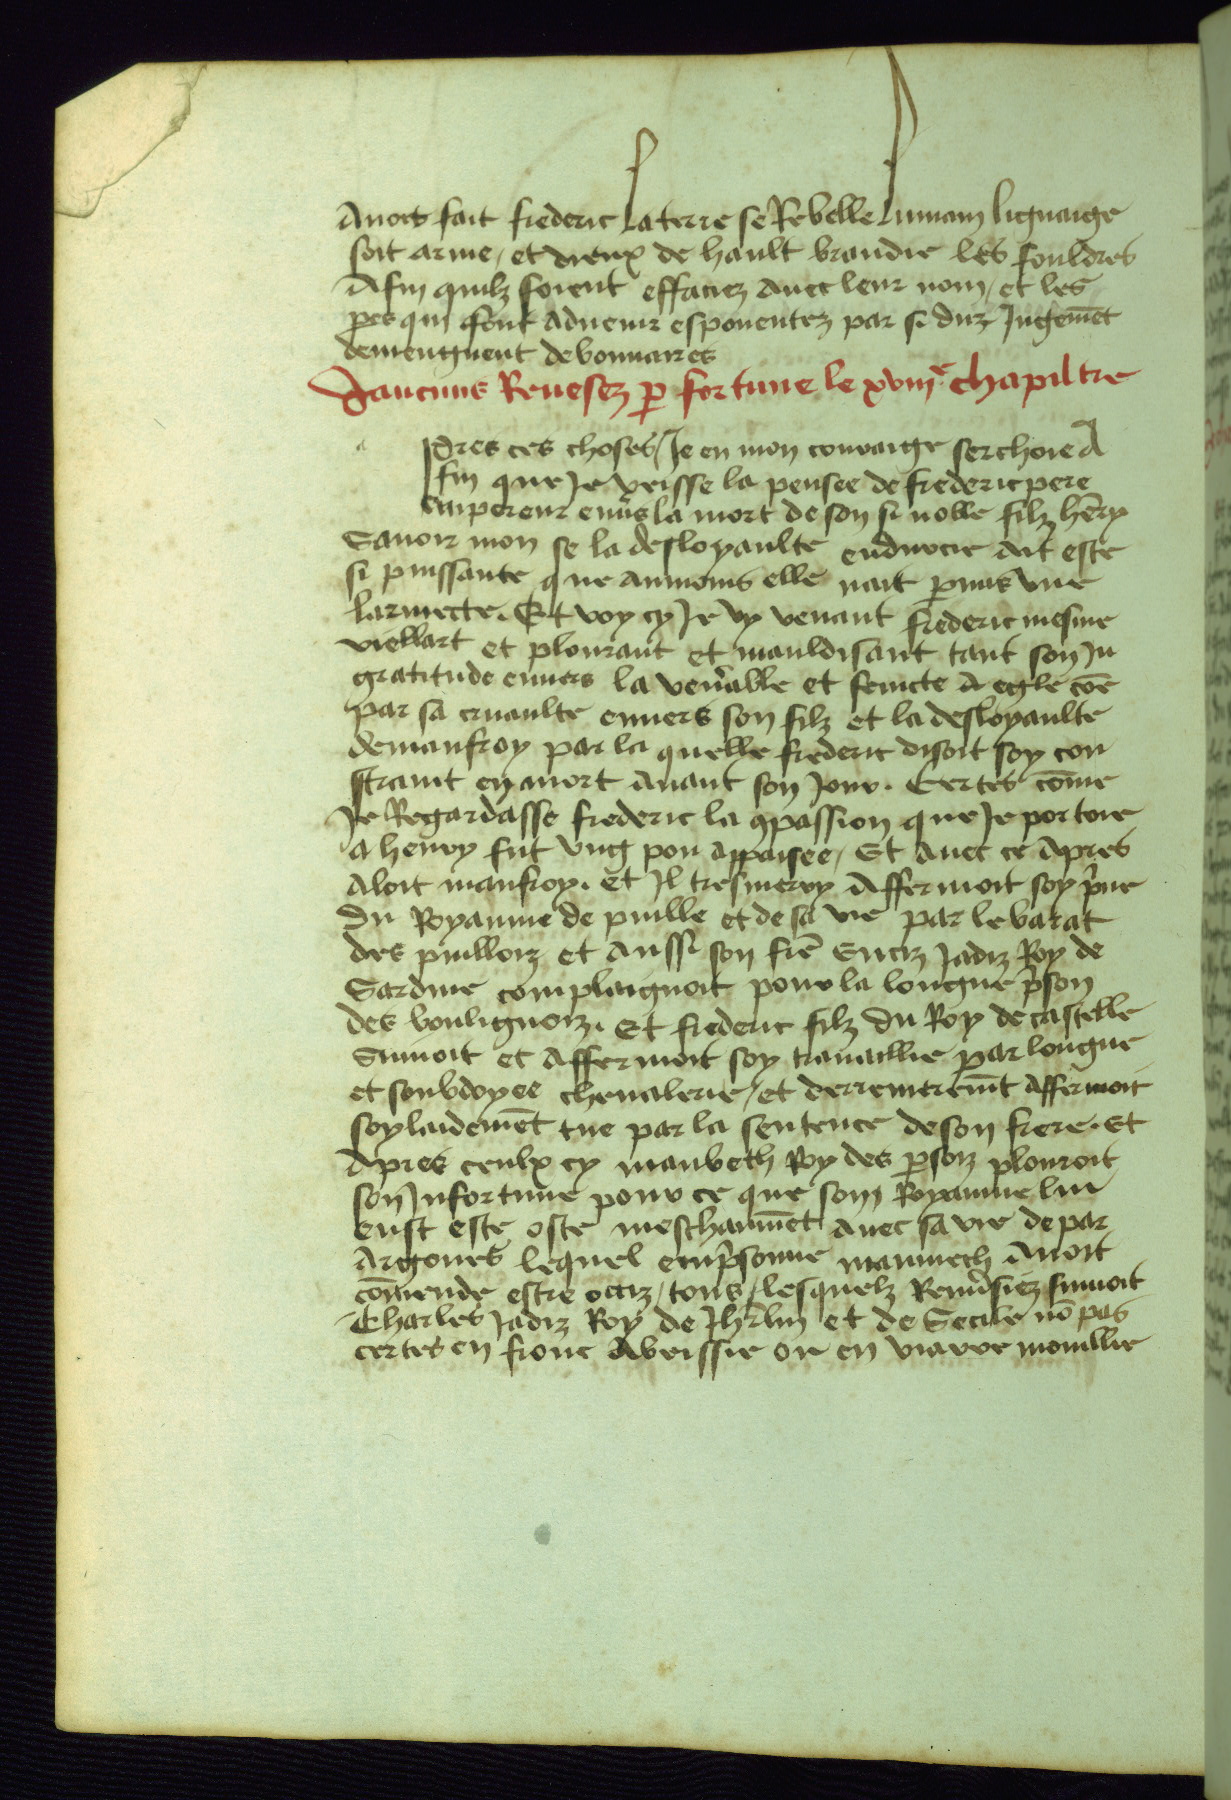 Auoit fait frederic La terre se Rebelle Lumain lignaige
soit arme / et dieux de hault brandie les fouldres
Afin quilz soient effaciez auec leur nom / et les
peres qui sont aduenir espouentez par si duz Jugemēt
deuiengnent debonnaires
Daucuns Reuersez p fortune le xviijᵉ chapiltre
Pres ces choses / Je en mon couraige serchoie A
fin que Je veisse la pensee de frederic pere
Empereur enuers la mort de son si noble filz hēry
Sauoir mon se la desloyaulte endurcie Ait este
si puissante que aumoins elle nait pmis vne
larmecte. Et voy cy Je vy venant frederic mesme
viellart et plourant et mauldisant tant son In
gratitude enuers la venerable et saincte A eglē cōe
par sa cruaulte enuers son filz et la desloyaulte
demanfroy par la quelle frederic disoit soy con
straint en mort Auant son Jour. Certes cōme
Je Regardasse frederic la 9passion que Je portoie
a henry fut vng pou appaisee / Et Auec ce Apres
Aloit manfroy. et Jl tresmerry Affermoit soy p̄ue
du Royaume de puille et de sa vie par le barat
des puilloiz et Aussi son frē Enciz Jadiz Roy de
Sardine complaignoit pour la longue p̄son
des boulignoiz. Et frederic filz du Roy de castelle
Suiuoit et Affermoit soy trauaillie par longue
et souldoyee cheualerie / et derreineremēt Affermoit
soy laidemēt tue par la sentence de son frere. Et
Apres ceulx cy manbeth Roy des psoiz plouroit
son Jnfortune pour ce que som Royaume lui
eust este oste meschanmēt auec sa vie de par
Argones lequel emp̄sonne manmech Auoit
cōmende estre occiz / tous / lesquelz Reuersiez suiuoit
Charles Jadiz Roy de Jhrlm et de Secile nō pas
certes en front Abeissie ou en viaire mouillie